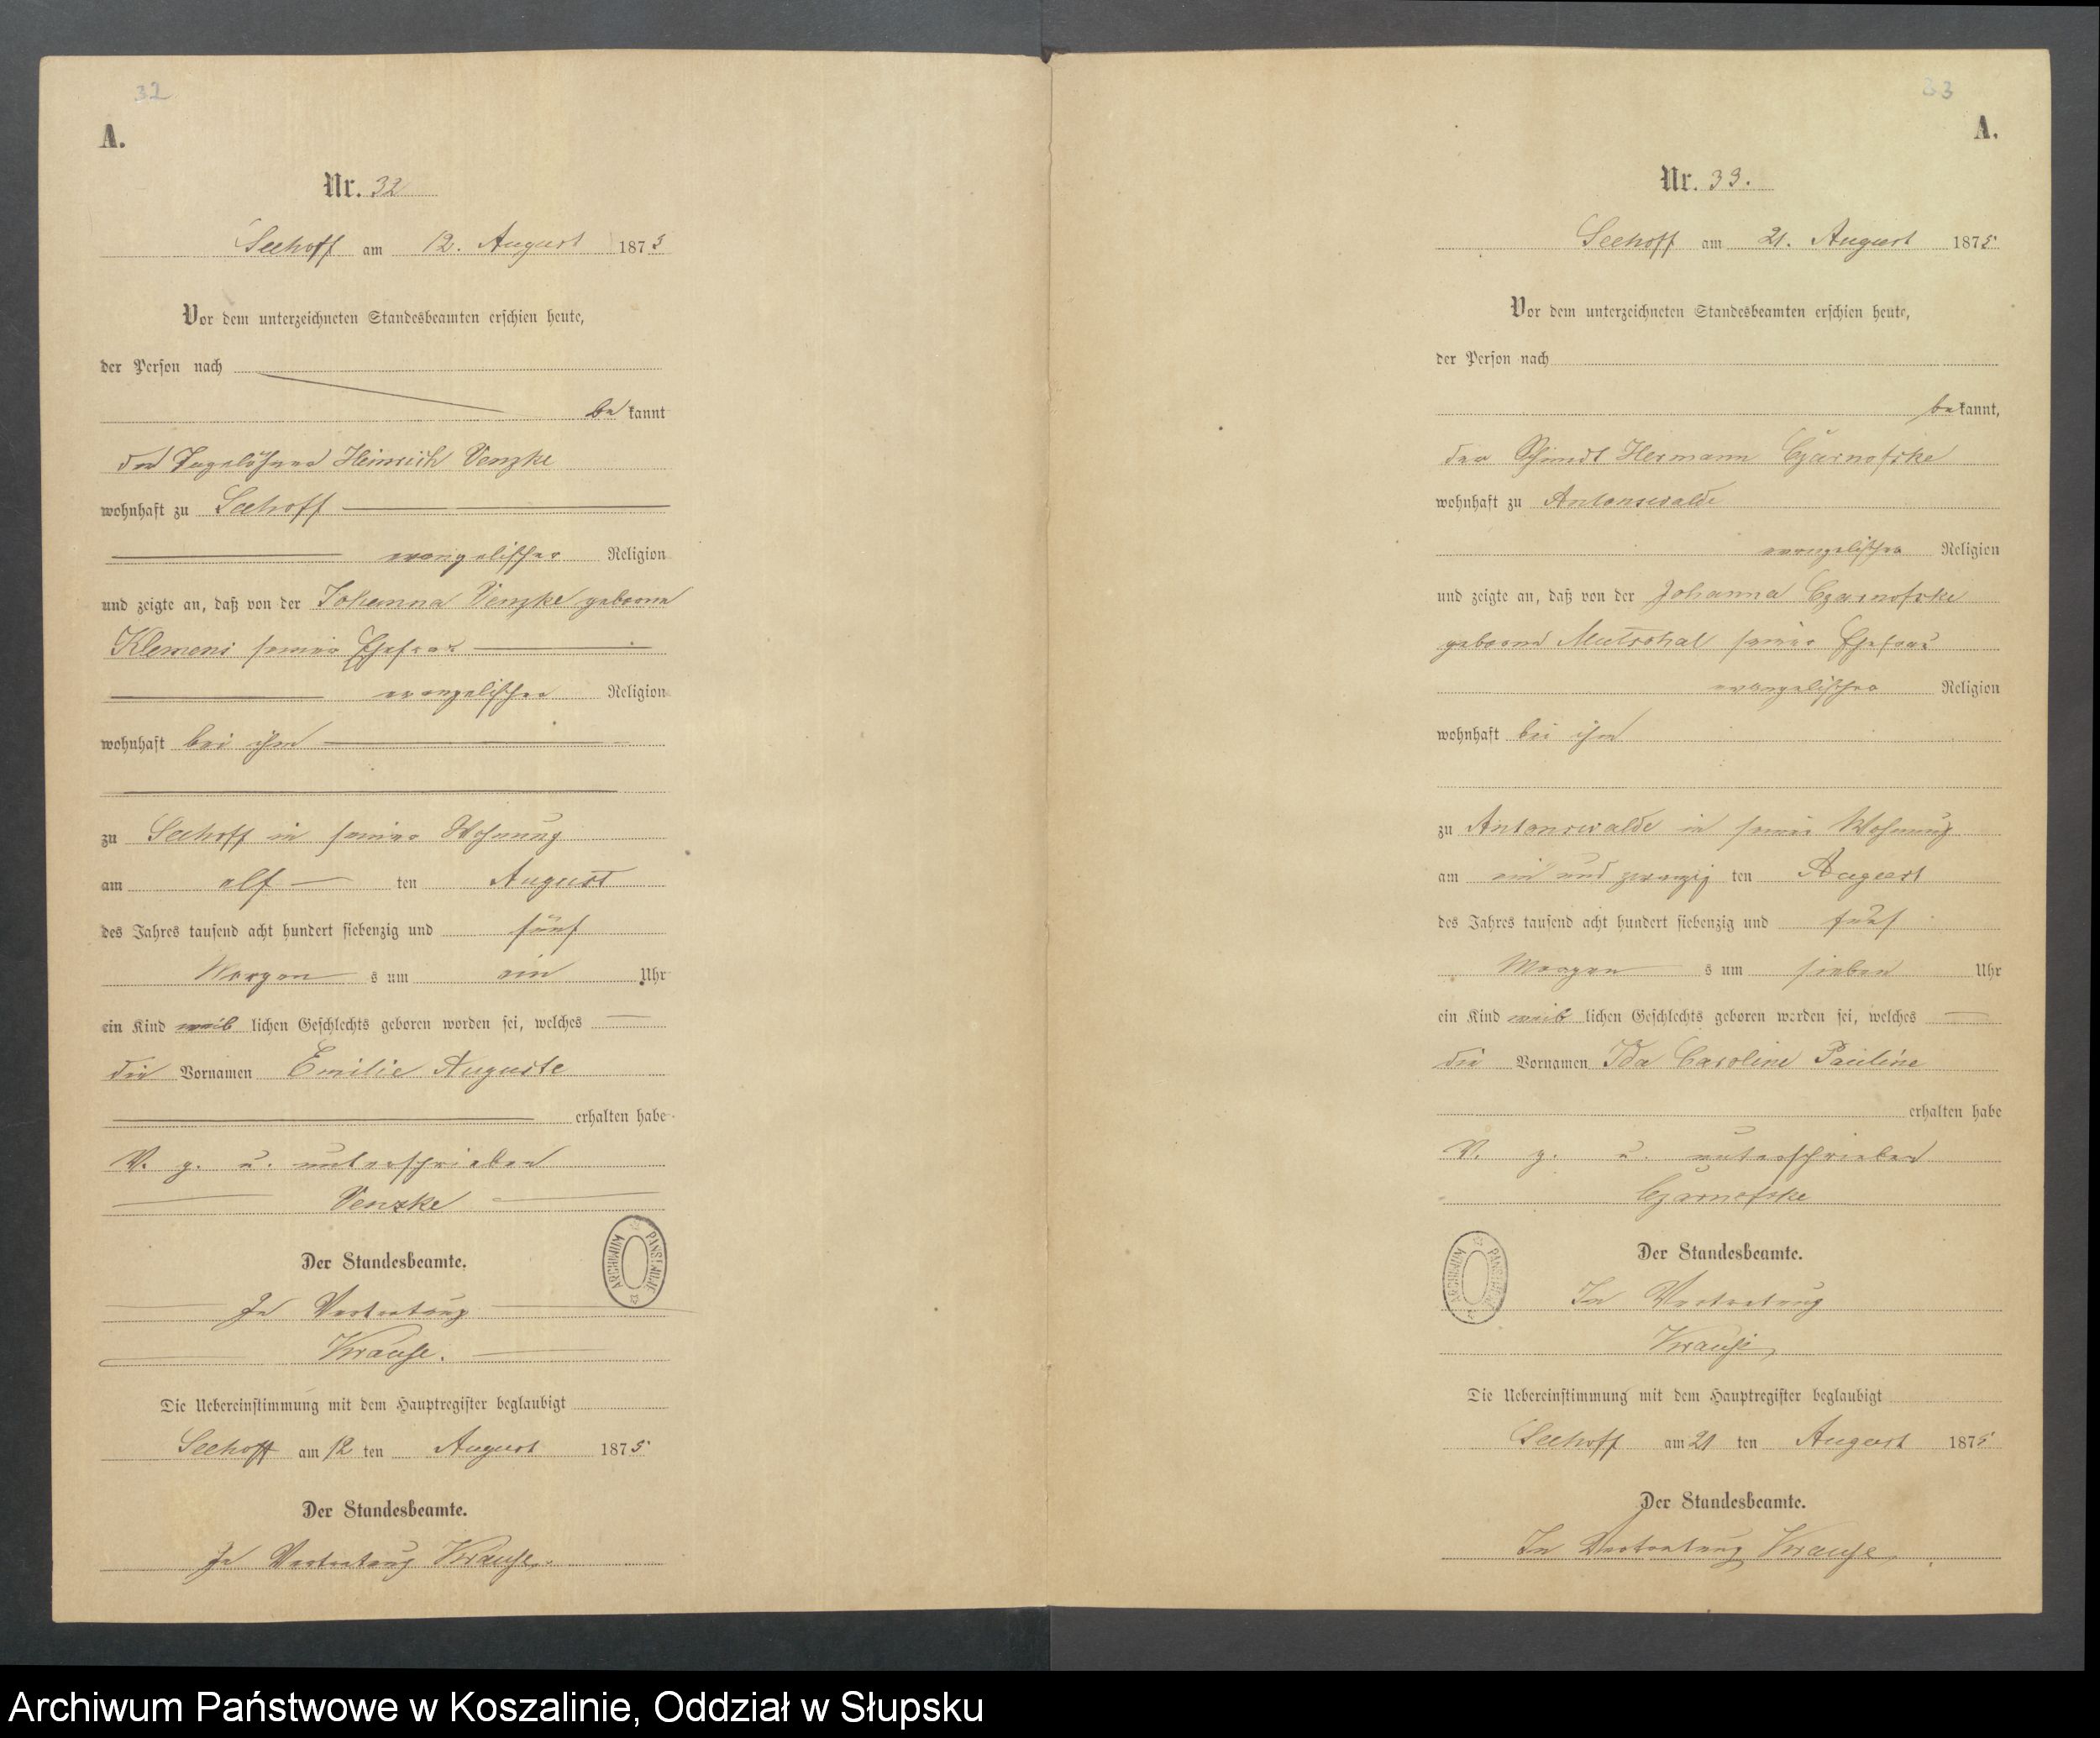 32
A.
Nr. 32
Seehoff am 12. August 1875
Vor dem unterzeichneten Standesbeamten erschien heute,
der Person nach
be kannt
der Tagelöhner Heinrich Venzke
wohnhaft zu Seehoff
evangelischer Religion
und zeigte an, daß von der Johanna Venzke geborne
Klemens seiner Ehefrau
evangelischer Religion
wohnhaft bei ihm
zu Seehoff in seiner Wohnung
am elf ten August
des Jahres tausend acht hundert siebenzig und fünf
Morgen s um ein Uhr
ein Kind weib lichen Geschlechts geboren worden sei, welches
die Vornamen Emilie Auguste
erhalten habe
V. g. u. unterschrieben
Venzke
ARCHIWUM PAŃSTWOWE
Der Standesbeamte.
In Vertretung
Krause.
Die Uebereinstimmung mit dem Hauptregister beglaubigt
Seehoff am 12 ten August 1875
Der Standesbeamte.
In Vertretung Krause.
33
A.
Nr. 33.
Seehoff am 21. August 1875
Vor dem unterzeichneten Standesbeamten erschien heute,
der Person nach
be kannt,
der Hermann Czarnofske
wohnhaft zu Antonswalde
evangelischer Religion
und zeigte an, daß von der Johanna Czarnofske
geborne seiner Ehefrau
evangelischer Religion
wohnhaft bei ihm
zu Antonswalde in seiner Wohnung
am ein und zwanzig ten August
des Jahres tausend acht hundert siebenzig und fünf
Morgen s um sieben Uhr
ein Kind weib lichen Geschlechts geboren worden sei, welches
die Vornamen Ida Caroline Pauline
erhalten habe
V. g. u. unterschrieben
Czarnofske
ARCHIWUM PAŃSTWOWE
Der Standesbeamte.
In Vertretung
Krause
Die Uebereinstimmung mit dem Hauptregister beglaubigt
Seehoff am 21 ten August 1875
Der Standesbeamte.
In Vertretung Krause
Archiwum Państwowe w Koszalinie, Oddział w Słupsku